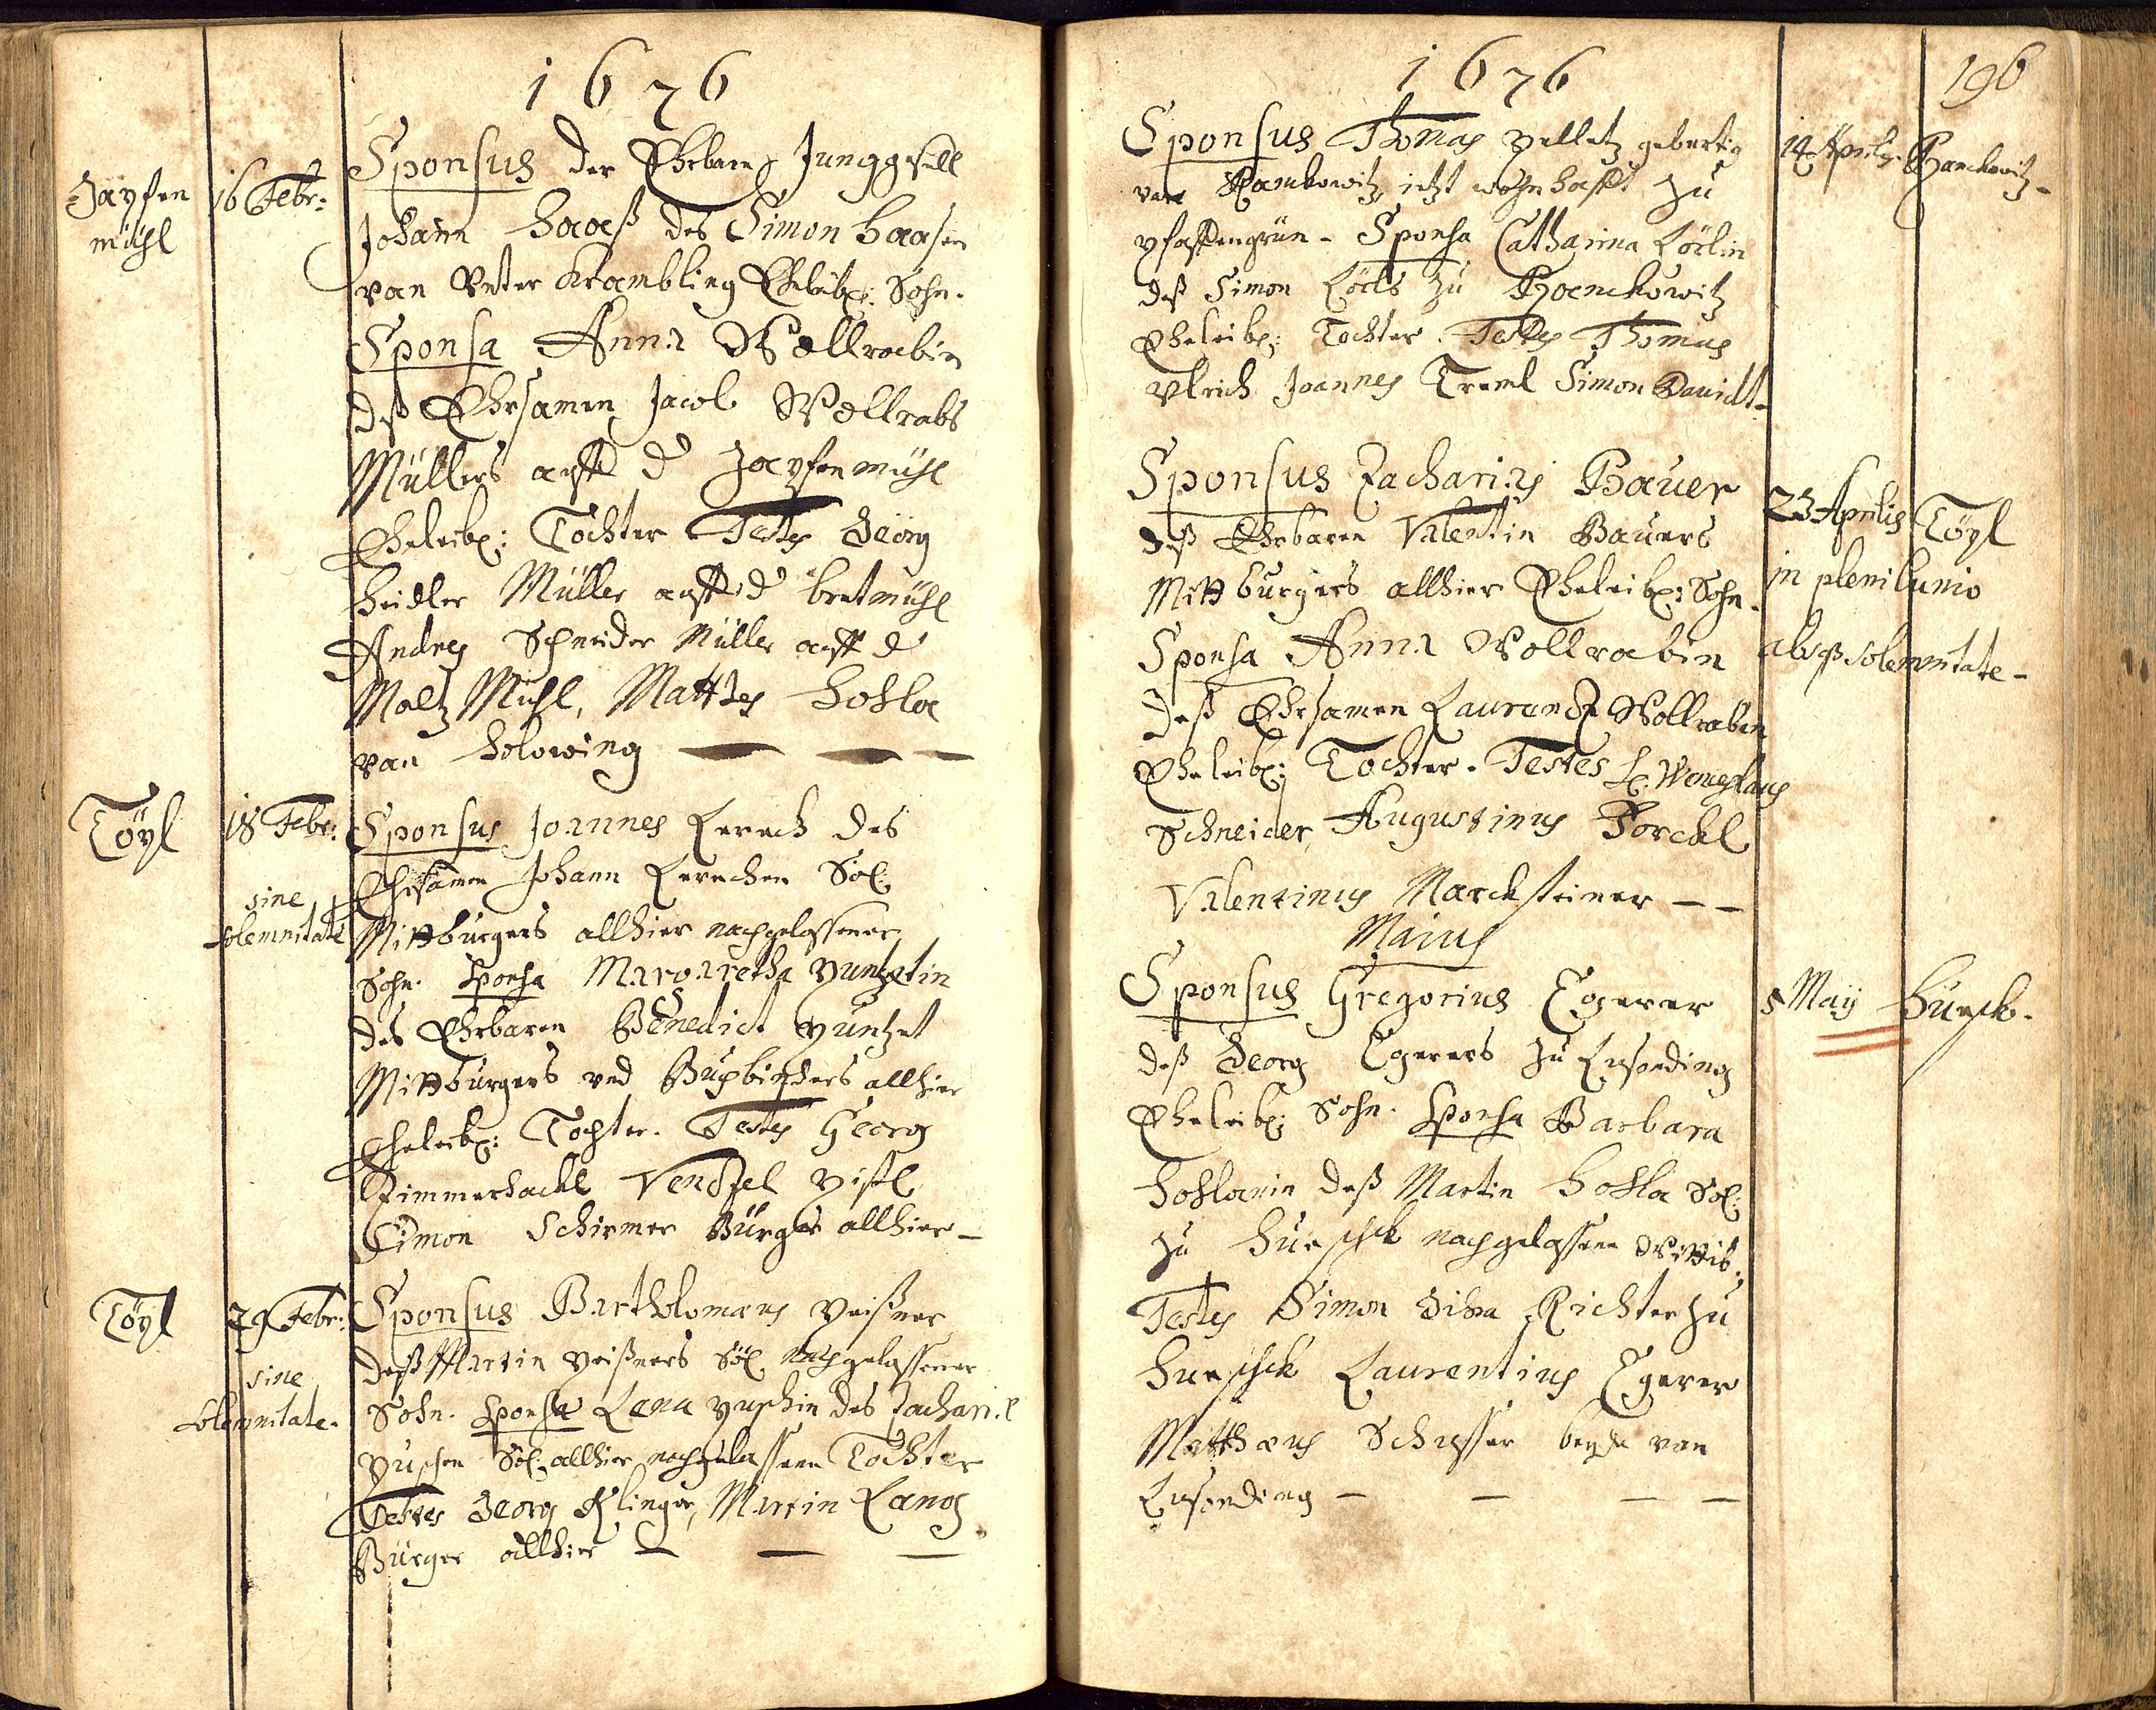 1676
Zapfen
mühl
16 Febr:
Sponsus der Ehrbare Junggesell
Johann Haaß des Simon Haasen
von Unter Krambling Eheleibl: Sohn.
Sponsa Anna Wollrabin
deß Ehrsamen Jacob Wollrabs
Müllers auff d Zapfenmühl
Eheleibl: Tochter Testes Georg
Heidler Müller auff d bretmühl
Andres Schneider Müller auff d
Maltz Mühl, Matthes Hohla
von Holowing
Töpl
18 Febr:
sine
solemnitate
Sponsus Joannes Lerech des
Ehrsamen Johann Lerechen Söl:
Mittburgers allhier nachgelassener
Sohn. Sponsa Margaretha Puntzetin
des Ehrbaren Benedict Puntzet
Mittburgers vnd allhier
Eheleibl: Tochter. Testes Georg
Zimmerhackl Ventzel
Simon Schirmer Bürger allhier
Töpl
29 Febr:
sine
solemnitate.
Sponsus Bartholomæus Peißner
deß Martin Peißners Söl. nachgelassener
Sohn. Sponsa Lena des
Söl. allhier nachgelassene Tochter
Testes Georg Klinger, Martin Lang
Bürger allhier
1676
196
Sponsus Thomas gebertig
von Rankowitz ietzt wohnhafft zu
Pfaffengrün - Sponsa Catharina Löclin
deß Simon Löcls zu
Eheleibl: Tochter. Testes Thomas
Ulrich Joannes Treml Simon Davidt
14 Aprilis.
Sponsus Zacharias Bauer
deß Ehrbaren Valentin Bauers
Mittburgers allhier Eheleibl: Sohn.
Sponsa Anna Wollrabin
deß Ehrsamen Laurentz Wollraben
Eheleibl: Tochter. Testes Wenceslaus
Schneider, Augustinus Forckl
Valentinus Marcksteiner
23 Aprilis Töpl
in plenilunio
absq solemnitate
Maius
Sponsus Gregorius Egerer
deß Georg Egerers zu
Eheleibl: Sohn. Sponsa Barbara
Hohlanin deß Martin Hohla Söl:
zu Hurschk nachgelassene Wittib.
Testes Simon Richter zu
Hurschk Laurentius Egerer
Matthæus Schusser beyde von
5 Maij Hurschk.